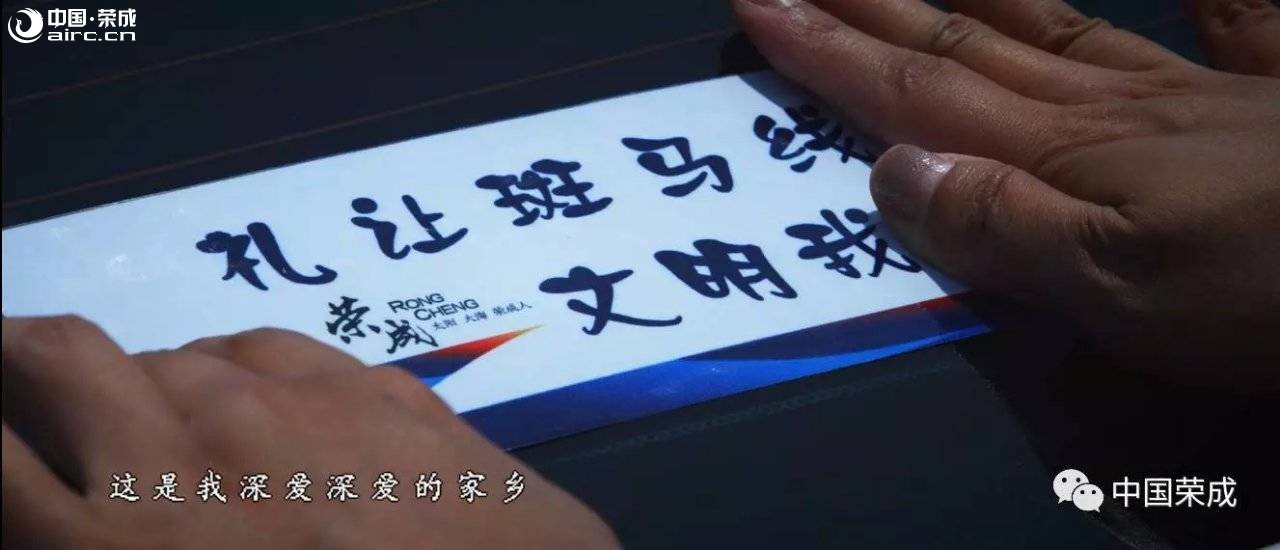 中国·荣成
airc.cn
礼让斑马线
文明我
荣成
RONG
CHENG
太阳 大海 荣成人
这是我深爱深爱的家乡
中国荣成